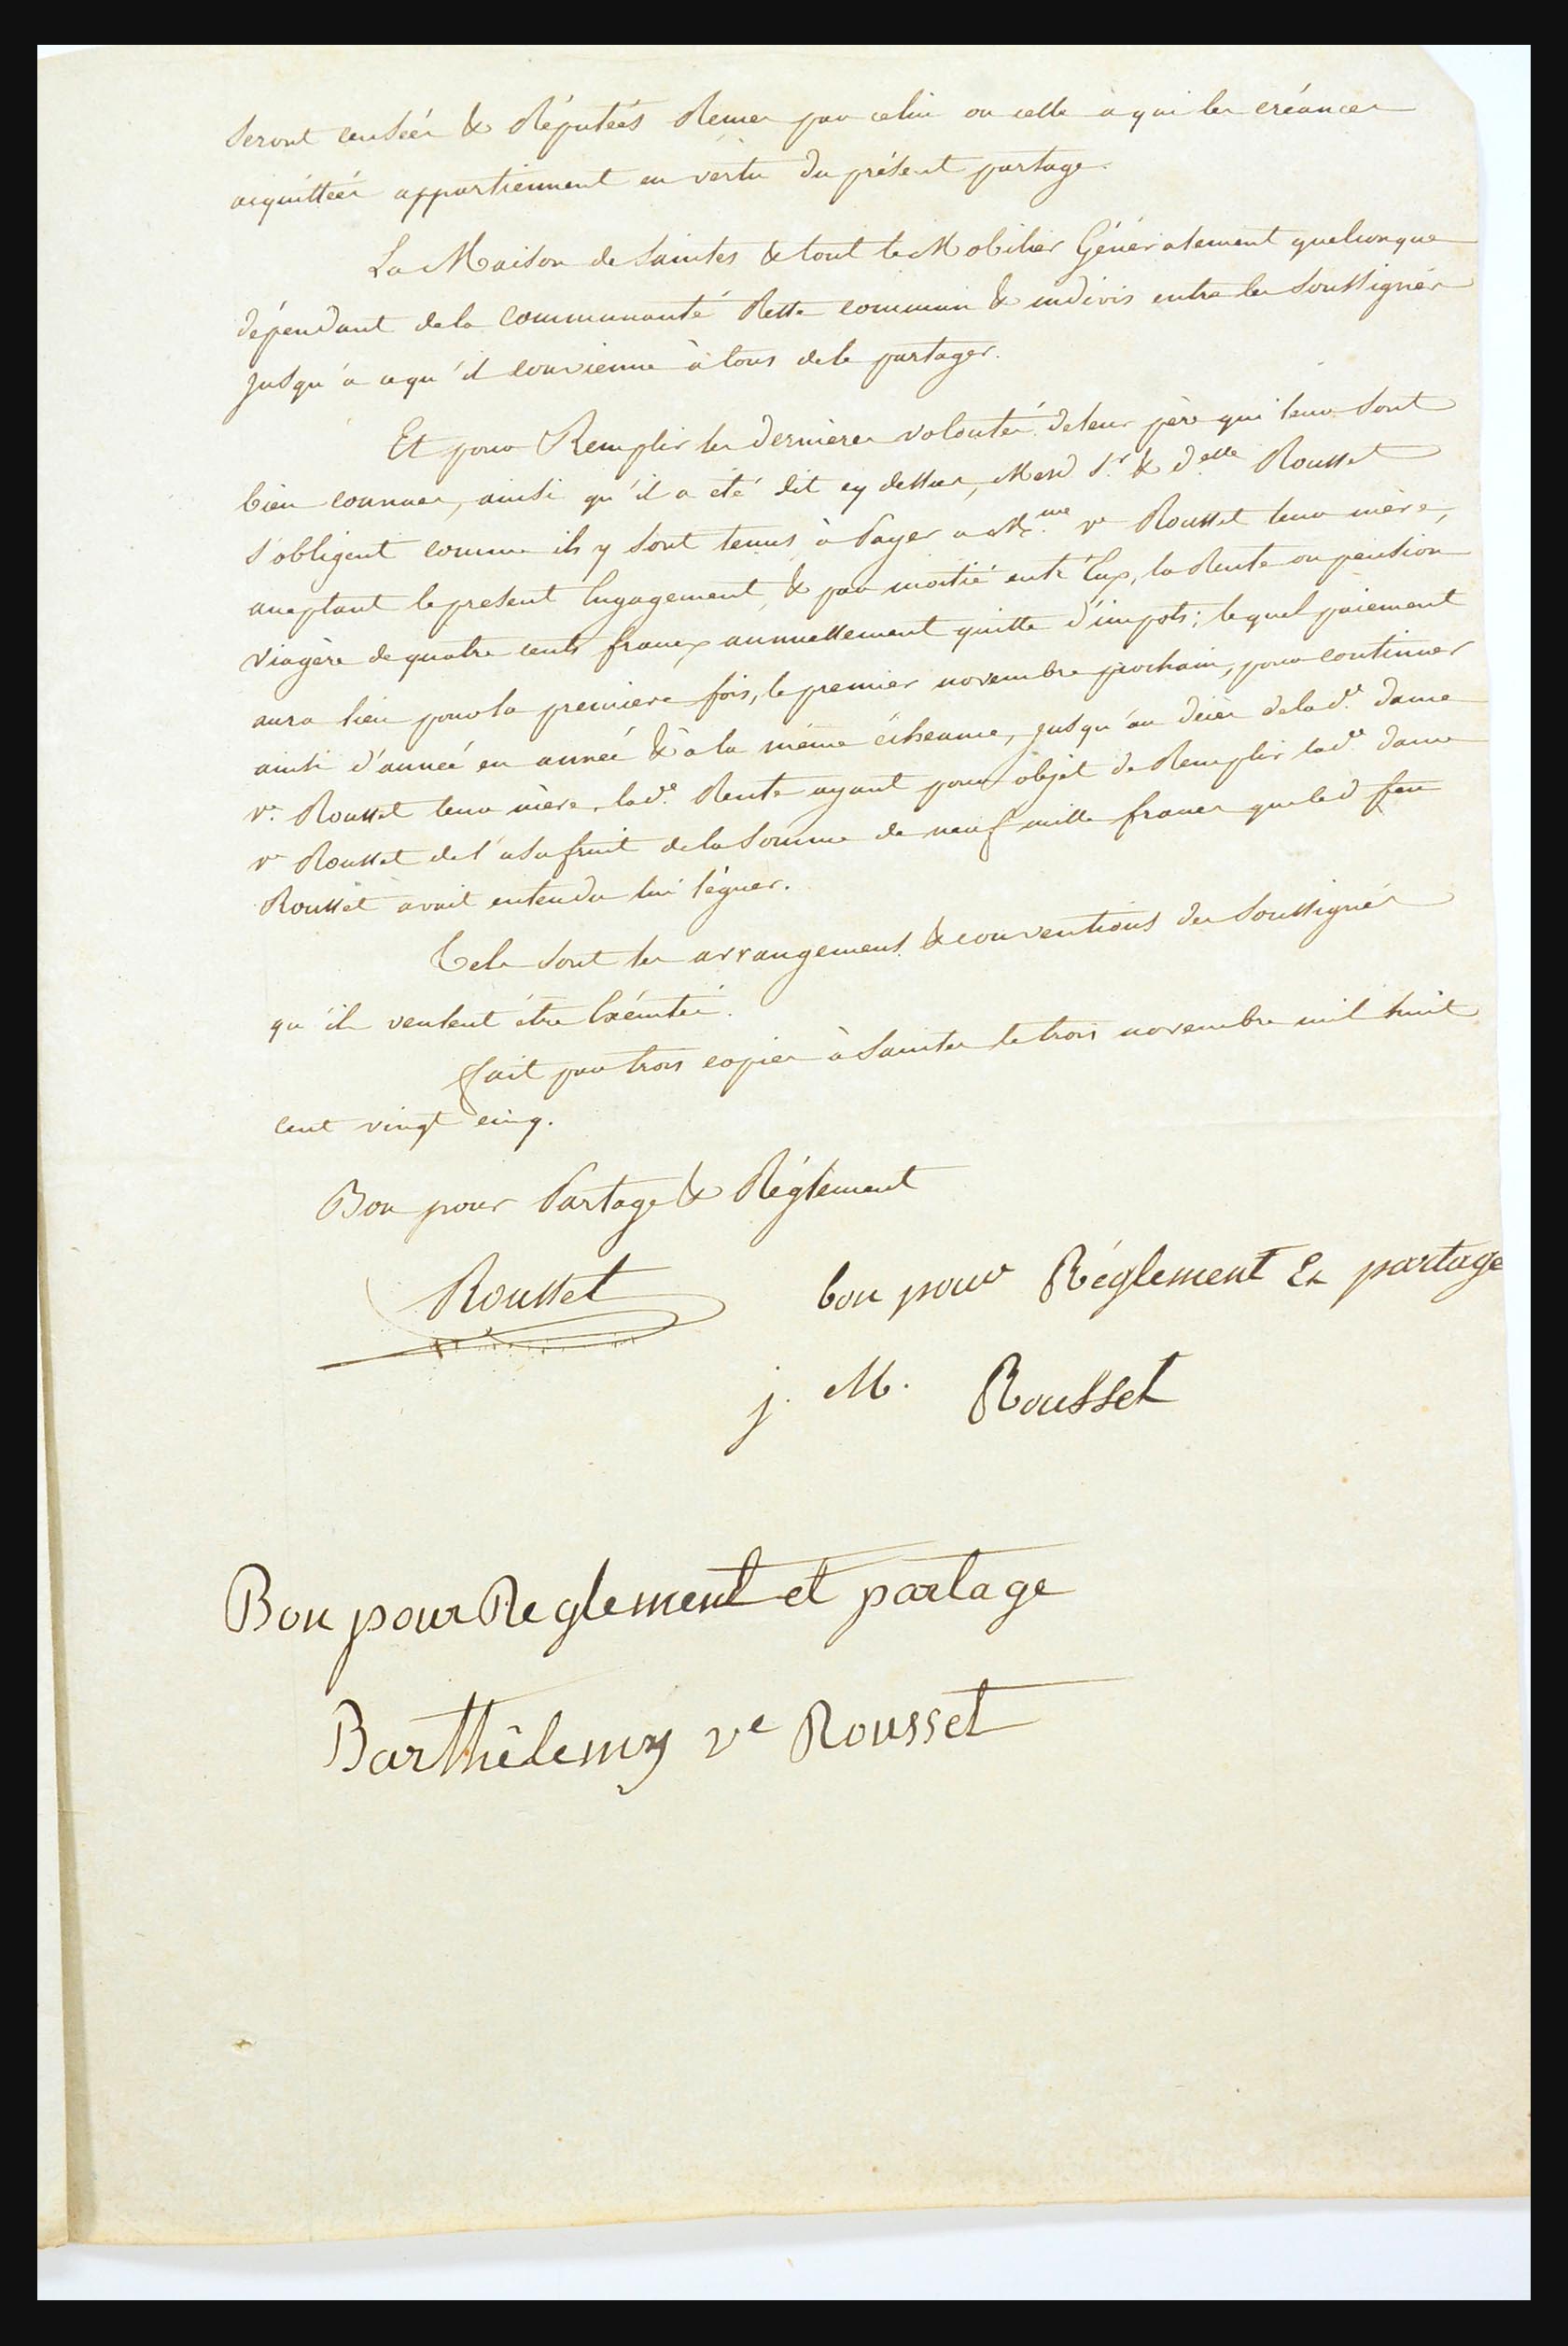 Seront censées & Réputées Remer par celui ou celle à qui les créances
acquittées appartiennent en vertu du présent partage.
La Maison de Saintes & tout le Mobilier Généralement quelconque
dépendant de la Communauté Reste commun & indivis entre les Soussignés
jusqu'à ce qu'il convienne à tous de le partager.
Et pour Remplir les dernieres volontés de leur père qui leur sont
bien connues, ainsi qu'il a été dit cy dessus, Mesd Sr. & delle Rousset
s'obligent comme ils y sont tenus à Payer a Mme. ve Rousset leur mère,
acceptant le present Engagement, & par moitié entr'Eux, la Rente ou pension
viagère de quatre cents francs annuellement quitte d'impots; lequel paiement
aura lieu pour la premiere fois, le premier novembre prochain, pour continuer
ainsi d'année en année & à la même échéance, jusqu'au décès de lad.e dame
ve. Rousset leur mère, lad.e Rente ayant pour objet de Remplir lad.e dame
ve Rousset de l'usufruit de la Somme de neuf mille francs que led feu
Rousset avait entendu lui léguer.
Tels sont les arrangements & conventions des Soussignés
qu'ils veulent être Exécutés.
fait par trois copies à Saintes le trois novembre mil huit
cent vingt cinq.
Bon pour Partage & Réglement
Rousset
bon pour Réglement Et partage
j. M. Rousset
Bon pour Reglement et partage
Barthêlemy ve Rousset